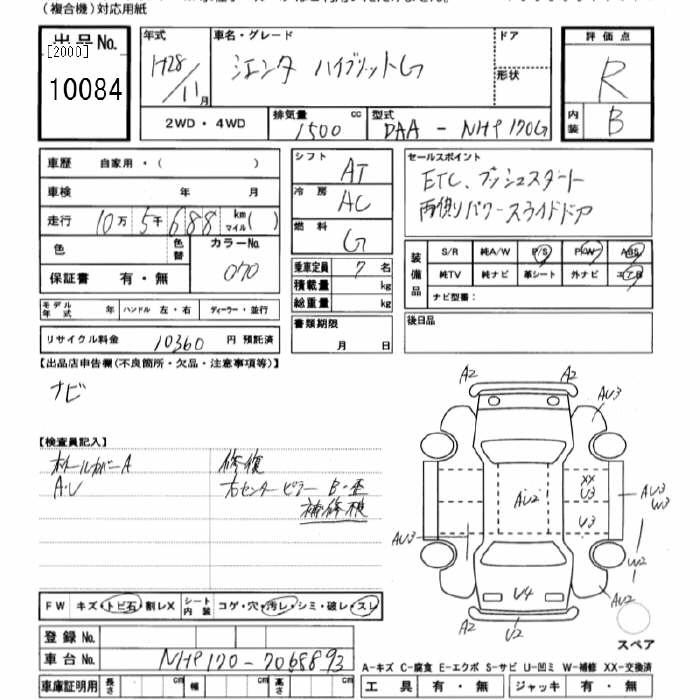 (複合機)対応用紙
出品No. [2000] 10084
年式 H28/11月
車名・グレード シエンタ ハイブリットG
ドア
形状
2WD・4WD
排気量 1500 cc
型式 DAA-NHP170G
評価点 R
内装 B
車歴 自家用・( )
車検 年 月
走行 10万5千688 km マイル( )
色 色替 カラーNo. 070
保証書 有・無
モデル年式 年 ハンドル 左・右 ディーラー・並行
リサイクル料金 10360 円 預託済
シフト AT
冷房 AC
燃料 G
乗車定員 7名
積載量 kg
総重量 kg
書類期限 月 日
セールスポイント
ETC、プッシュスタート
両側パワースライドドア
装備品 S/R 純A/W P/S P/W ABS
純TV 純ナビ 革シート 外ナビ エアB
ナビ型番:
後日品
【出品店申告欄(不良箇所・欠品・注意事項等)】
ナビ
【検査員記入】
ホイールカバーA 修復
A・U 右センターピラー B・歪
補修跡
A2 A2
AU3
XX
U3
AU2
U3
AU3
W3
AU3
W2
U4
AU2
A2 U2
スペア
FW キズ・トビ石・割レX シート内装 コゲ・穴・汚レ・シミ・破レ・スレ
登録No.
車台No. NHP170-7068893
車庫証明用 長さ cm 幅 cm 高さ cm
A-キズ C-腐食 E-エクボ S-サビ U-凹ミ W-補修 XX-交換済
工具 有・無 ジャッキ 有・無